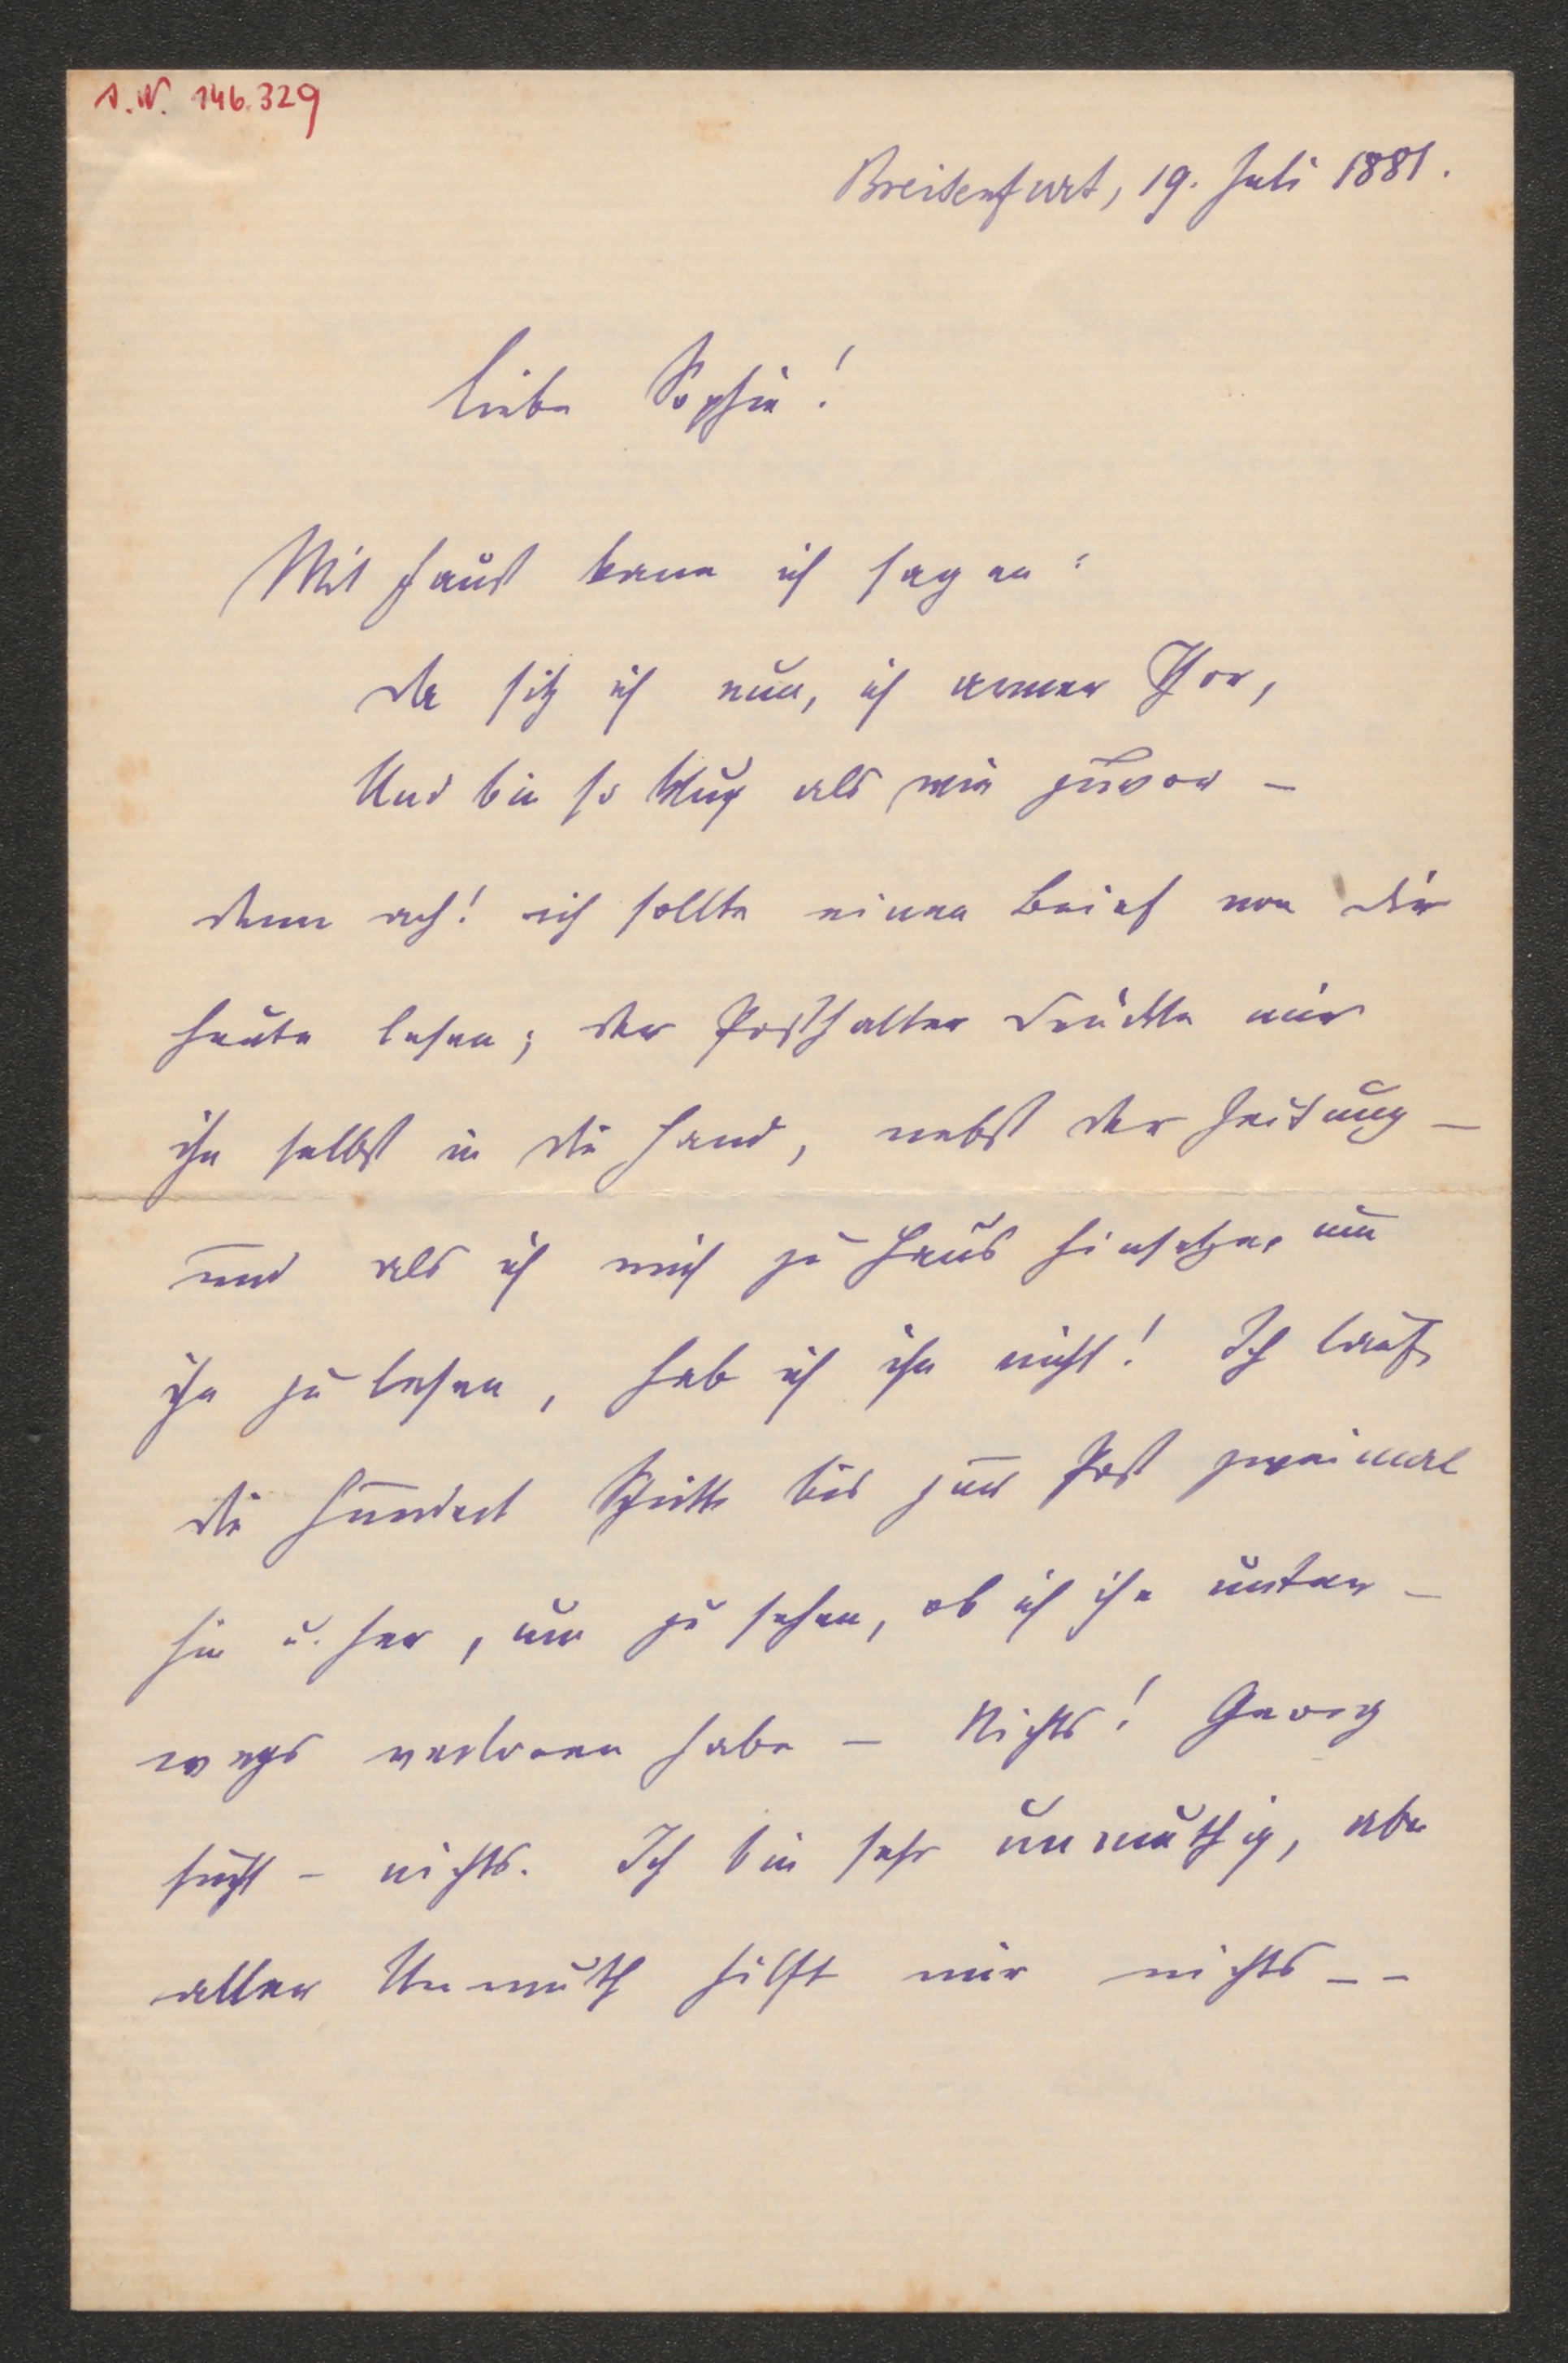 I.N. 146.329
Breitenfurt, 19. Juli 1881.
Liebe Sophie!
Mit Faust kann ich sagen:
Da sitz ich nun, ich armer Thor,
Und bin so klug als wie zuvor –
denn ach! ich sollte einen Brief von Dir
heute lesen; der Posthalter drückte mir
ihn selbst in die Hand, nebst der Zeitung –
und als ich mich zu Haus hinsetze, um
ihn zu lesen, hab ich ihn nicht! Ich lauf
die hundert Schritte bis zur Post zweimal
hin u. her, um zu sehen, ob ich ihn unter-
wegs verloren habe – Nichts! Georg
sucht – nichts. Ich bin sehr unmuthig, aber
aller Unmuth hilft mir nichts – –